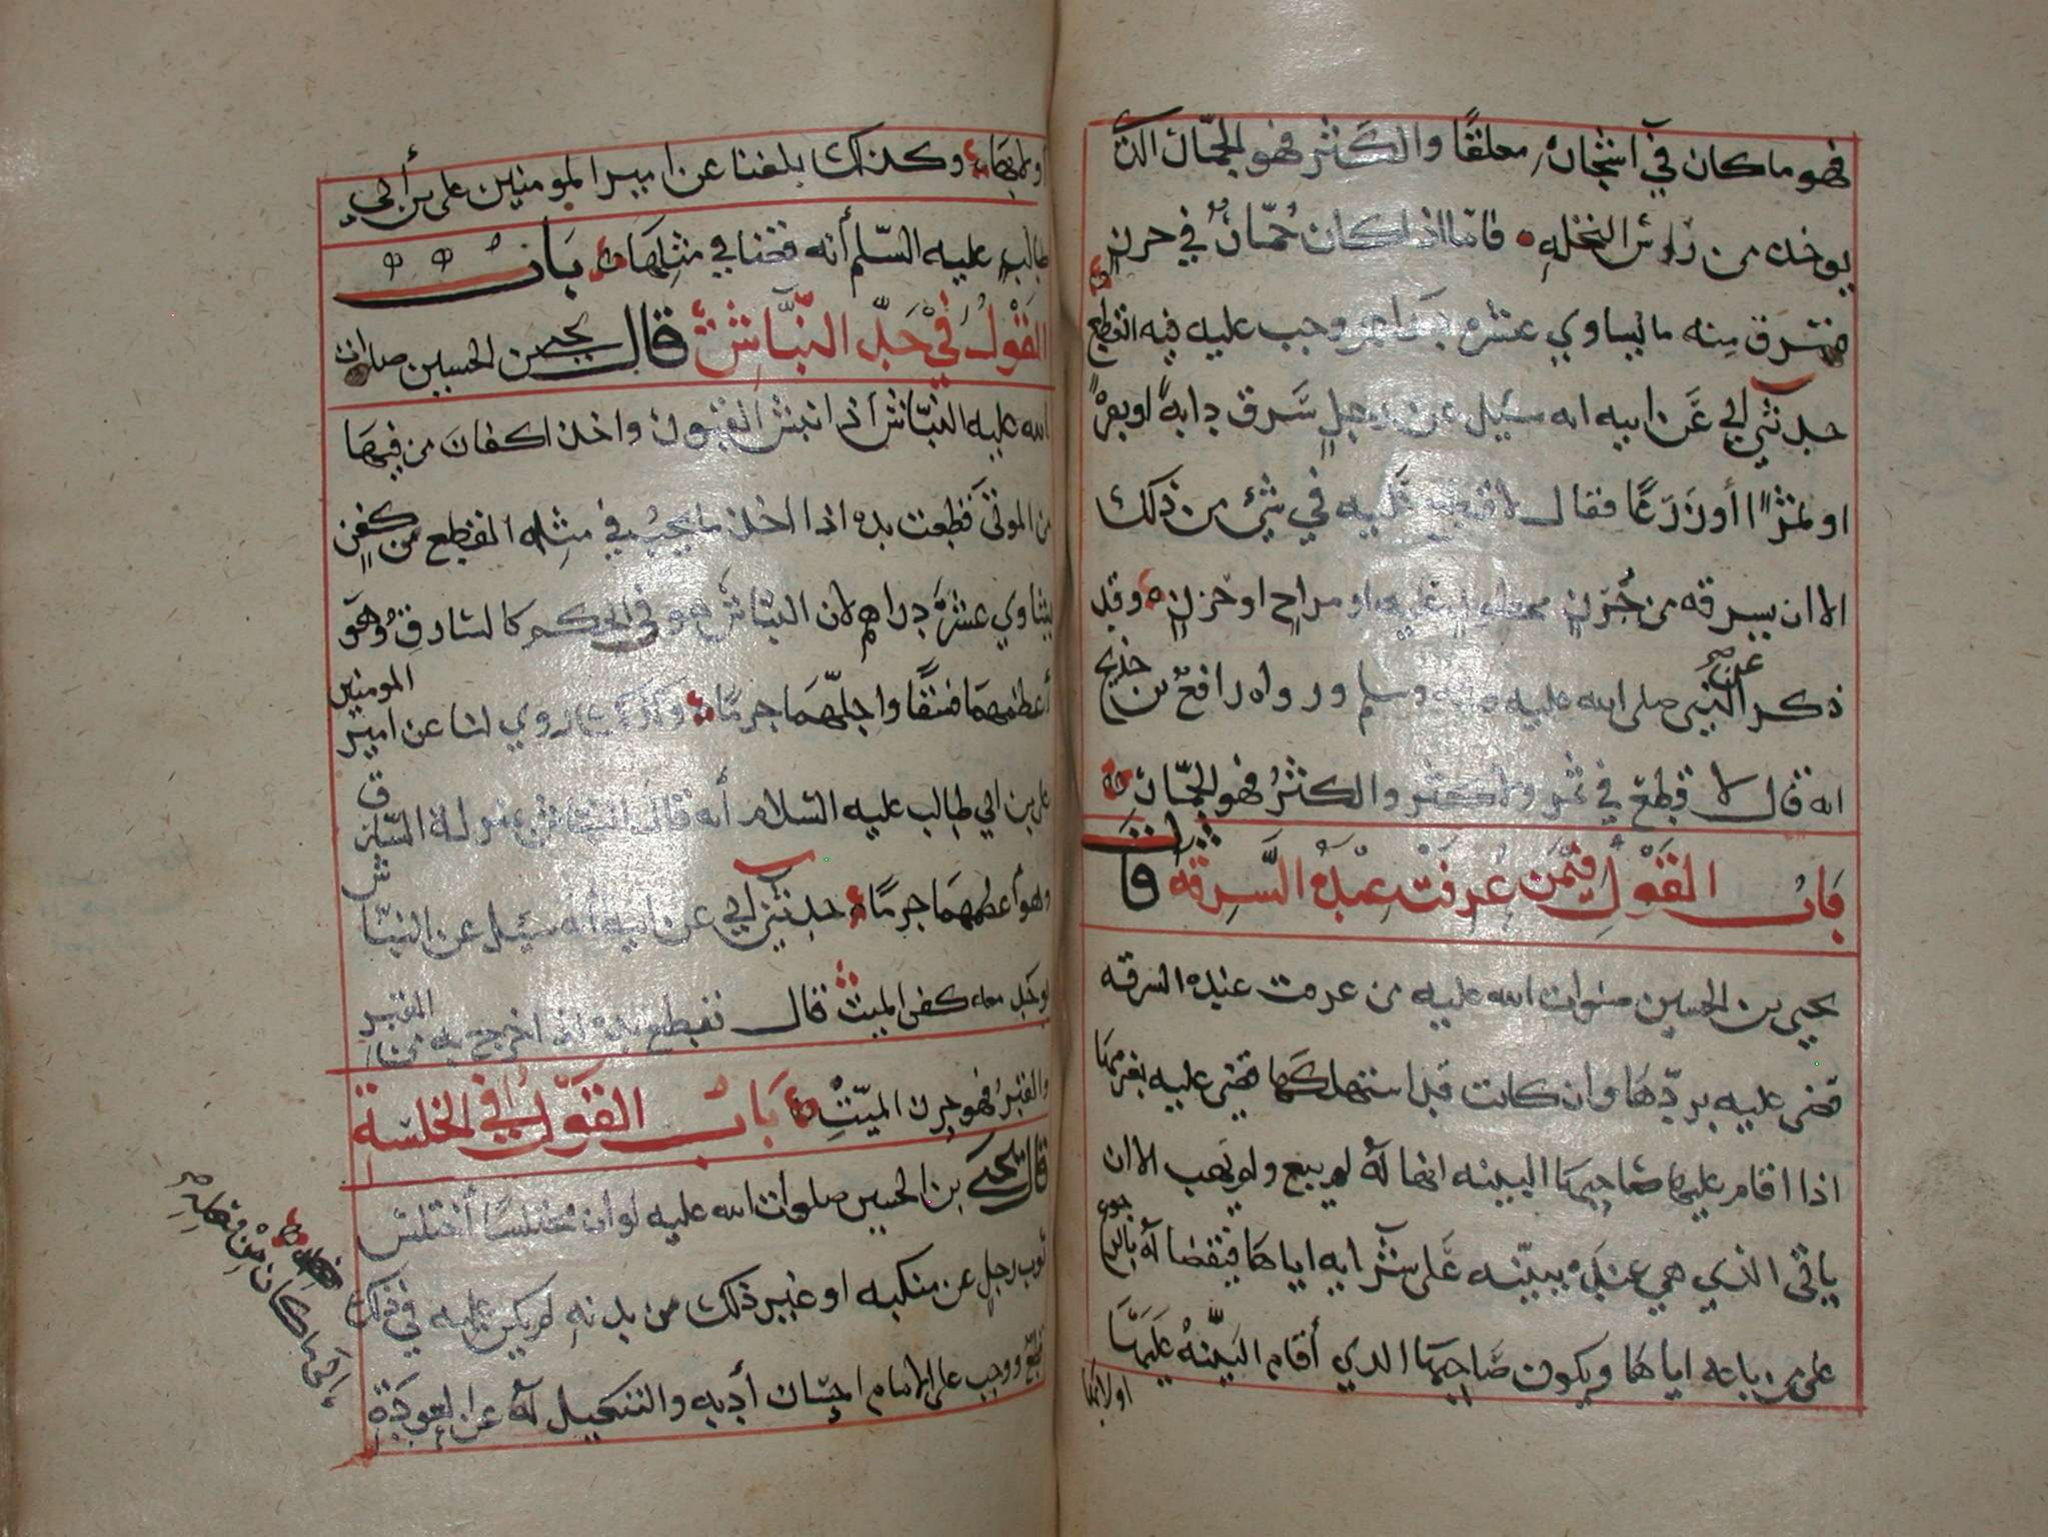 فهو ما كان في اشجاره معلقًا والكثر فهو الجمّار الذي
يوخذ من راوس النخله فامّا اذا كان جُمّارٌ في حرزٍ
فسرق منه ما يساوي عشره دراهم وجب عليه فيه القطع
حدثني ابي عَن ابيه انه سئيل عن رجلٍ سَرق دابةً او بعيرًا
او ثمرًا أو زَرعًا فقال لا قطع عليه في شيٍ من ذلك
الا ان يسرقه من جُرنٍ محظورٍ عليه او مراحٍ او حرزٍ وقد
ذكر عن النبي صلى الله عليه واله وسلم ورواه رافع بن خديج
انه قال لا قطع في ثمر ولا كثر والكثرُ فهو الجمّار
بَابُ القَوْلِ فيمَن عُرِفَتْ عِنْدهُ السَّرِقَه قال
يحيى بن الحسين صلوات الله عليه من عرفت عنده السرقه
قضي عليه بردّها وان كانت قد استهلكها قضي عليه بغرمها
اذا اقام عليها صَاحبهَا البينه انها لَهُ لم يبع ولم يهب الا ان
ياتي الذي هي عنده ببيّنه عَلى شَرايه اياها فيقضا له بالرجوع
على من باعه اياها ويكون صَاحِبهَا الذي أقام البَيِّنهُ عَليهَا
اولا بها
أولا بهَا وكذلك بلغنا عن امير المومنين علي بن أبي
طالبٍ عليه السّلم أنه قضا في مثلِهَا بَابُ
القَوْلُ فِيْ حَدِّ النبَّاشِ قال يحيى بن الحسين صلوات
الله عليه النبّاش أذا نبش القبور واخذ اكفان من فيها
من الموتى قطعت يده اذا اخذ ما يجبُ في مثله القطع من كفنٍ
يساوي عشرَه دراهم لان النبّاشَ هو في الحكم كالسارقِ وهَو
أعظمهمَا فسقًا واجلّهمَا جرمًا وكذلك روي لنا عن امير المومنين
علي بن ابي طالب عليه السّلام أنه قال النباش بمنزلة السّارق
وهو أعظمهمَا جرمًا حدثني أبي عن ابيه أنه سئيل عن النبّاش
يوخذ معه كفن الميت قال تقطع يده اذا اخرج به من القبر
والقبرُ فهو حِرز الميّتِ بَابُ القَوْل في الخلسة
قال يَحيى بن الحسين صلوات الله عليه لو ان مختلسًا أختلس
ثوب رجلٍ عن منكبه او غير ذلك من بدنهِ لم يكن عليه في ذلك
قطعٌ ووجب على الامام احسان أدبه والتنكيل لَهُ عن العَودَة
الى ما كان مِن فعله